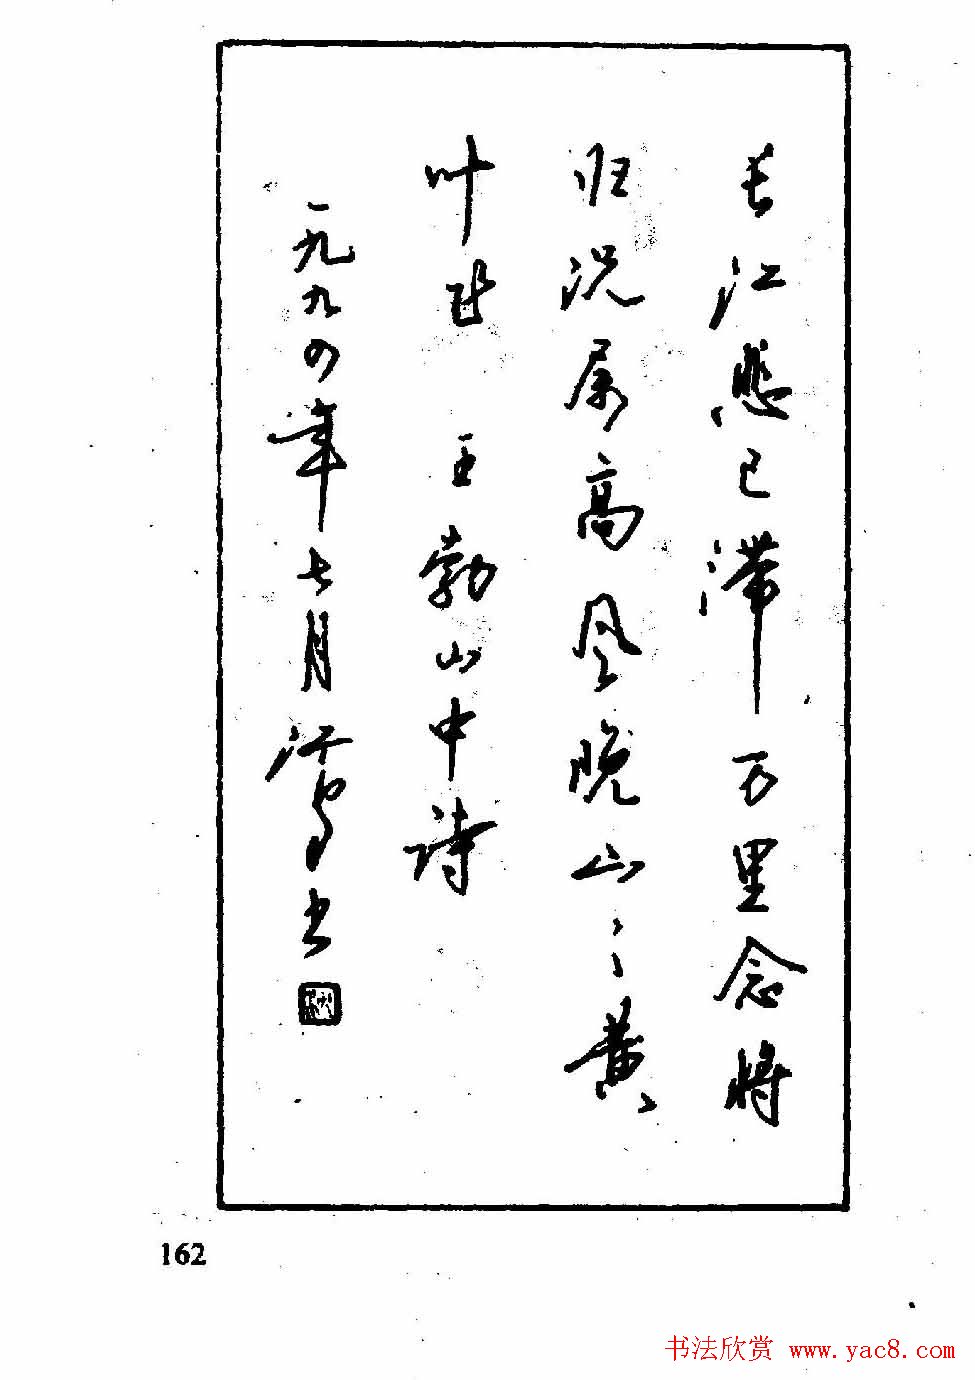 长江悲已滞万里念将
归况属高风晚山〻黄
叶飞 王勃山中诗
一九九四年七月江鸟书
162
书法欣赏 www.yac8.com